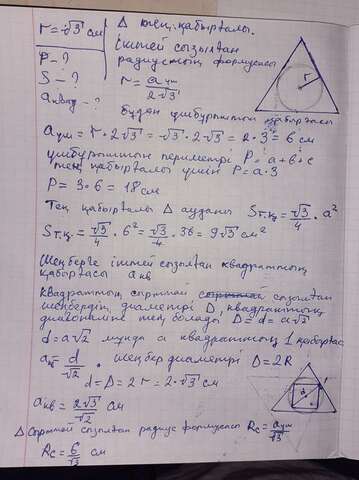 r = √3 см
P - ?
S - ?
aквад - ?
Δ тең қабырғалы.
іштей сызылған
радиустың формуласы
r = aүш / 2√3
r
бұдан үшбұрыштың қабырғасы
aүш = r · 2√3 = √3 · 2√3 = 2 · 3 = 6 см
үшбұрыштың периметрі P = a + b + c
тең қабырғалы үшін P = a · 3
P = 3 · 6 = 18 см
Тең қабырғалы Δ ауданы Sт.қ. = √3/4 · a²
Sт.қ. = √3/4 · 6² = √3/4 · 36 = 9√3 см²
Шеңберге іштей сызылған квадраттың
қабырғасы aкв
Квадраттың сырттай сызылған
шеңбердің диаметрі D, квадраттың
диагоналіне тең болады D = d = a√2
d = a√2 мұнда a квадраттың 1 қабырғасы
aкв = d/√2 . шеңбер диаметрі D = 2R
d = D = 2r = 2 · √3 см
aкв = 2√3/√2 см
d
Δ Сырттай сызылған радиус формуласы Rc = aүш/√3
Rc = 6/√3 см